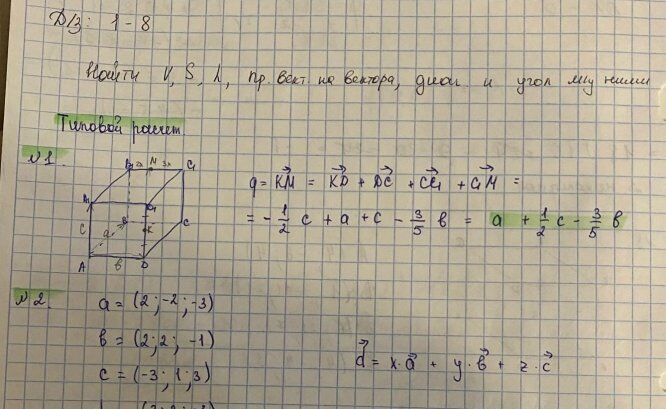 Д/З: 1-8
Найти V, S, h, пр. вект. на вектора, диаг. и угол м/у ними
Типовой расчет
№1.
B₁ 2x M 3x C₁
A₁ D₁
B K C
c a
A b D
q = KM = KD + DC + CC₁ + C₁M =
= -1/2 c + a + c - 3/5 b = a + 1/2 c - 3/5 b
№2.
a = (2; -2; -3)
b = (2; 2; -1)
c = (-3; 1; 3)
d = x·a + y·b + z·c